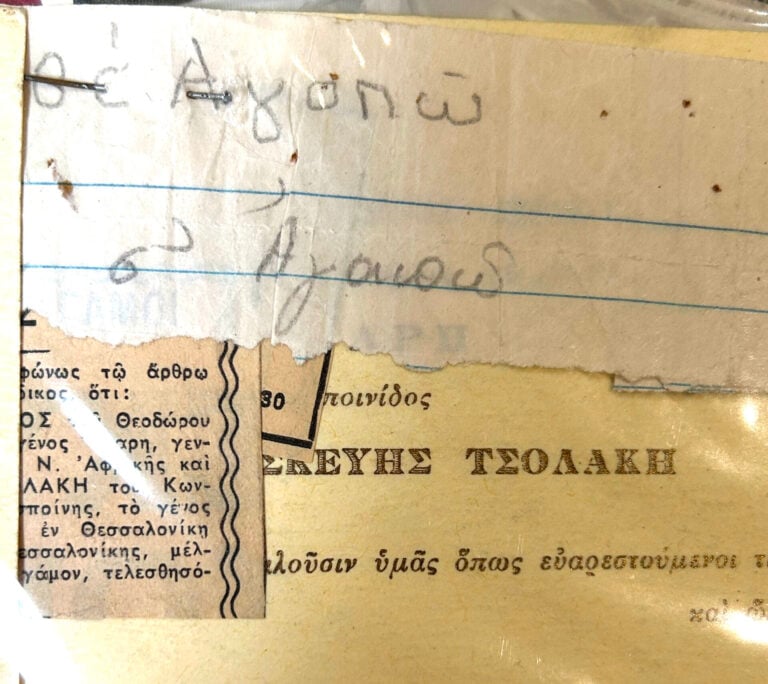 θέ Αγαπώ
σ' Αγαπώ
φώνως τῷ ἄρθρῳ
δικος ὅτι:
ΟΣ Θεοδώρου
γένος αρη, γεν-
Ν. Ἀφ κῆς καὶ
ΛΑΚΗ του Κων-
ποίνης, τὸ γένος
ἐν Θεσσαλονίκῃ
εσσαλονίκης, μέλ-
γάμον, τελεσθησό-
30
ποινίδος
ΣΚΕΥΗΣ ΤΣΟΛΑΚΗ
λοῦσιν ὑμᾶς ὅπως εὐαρεστούμενοι
καὶ